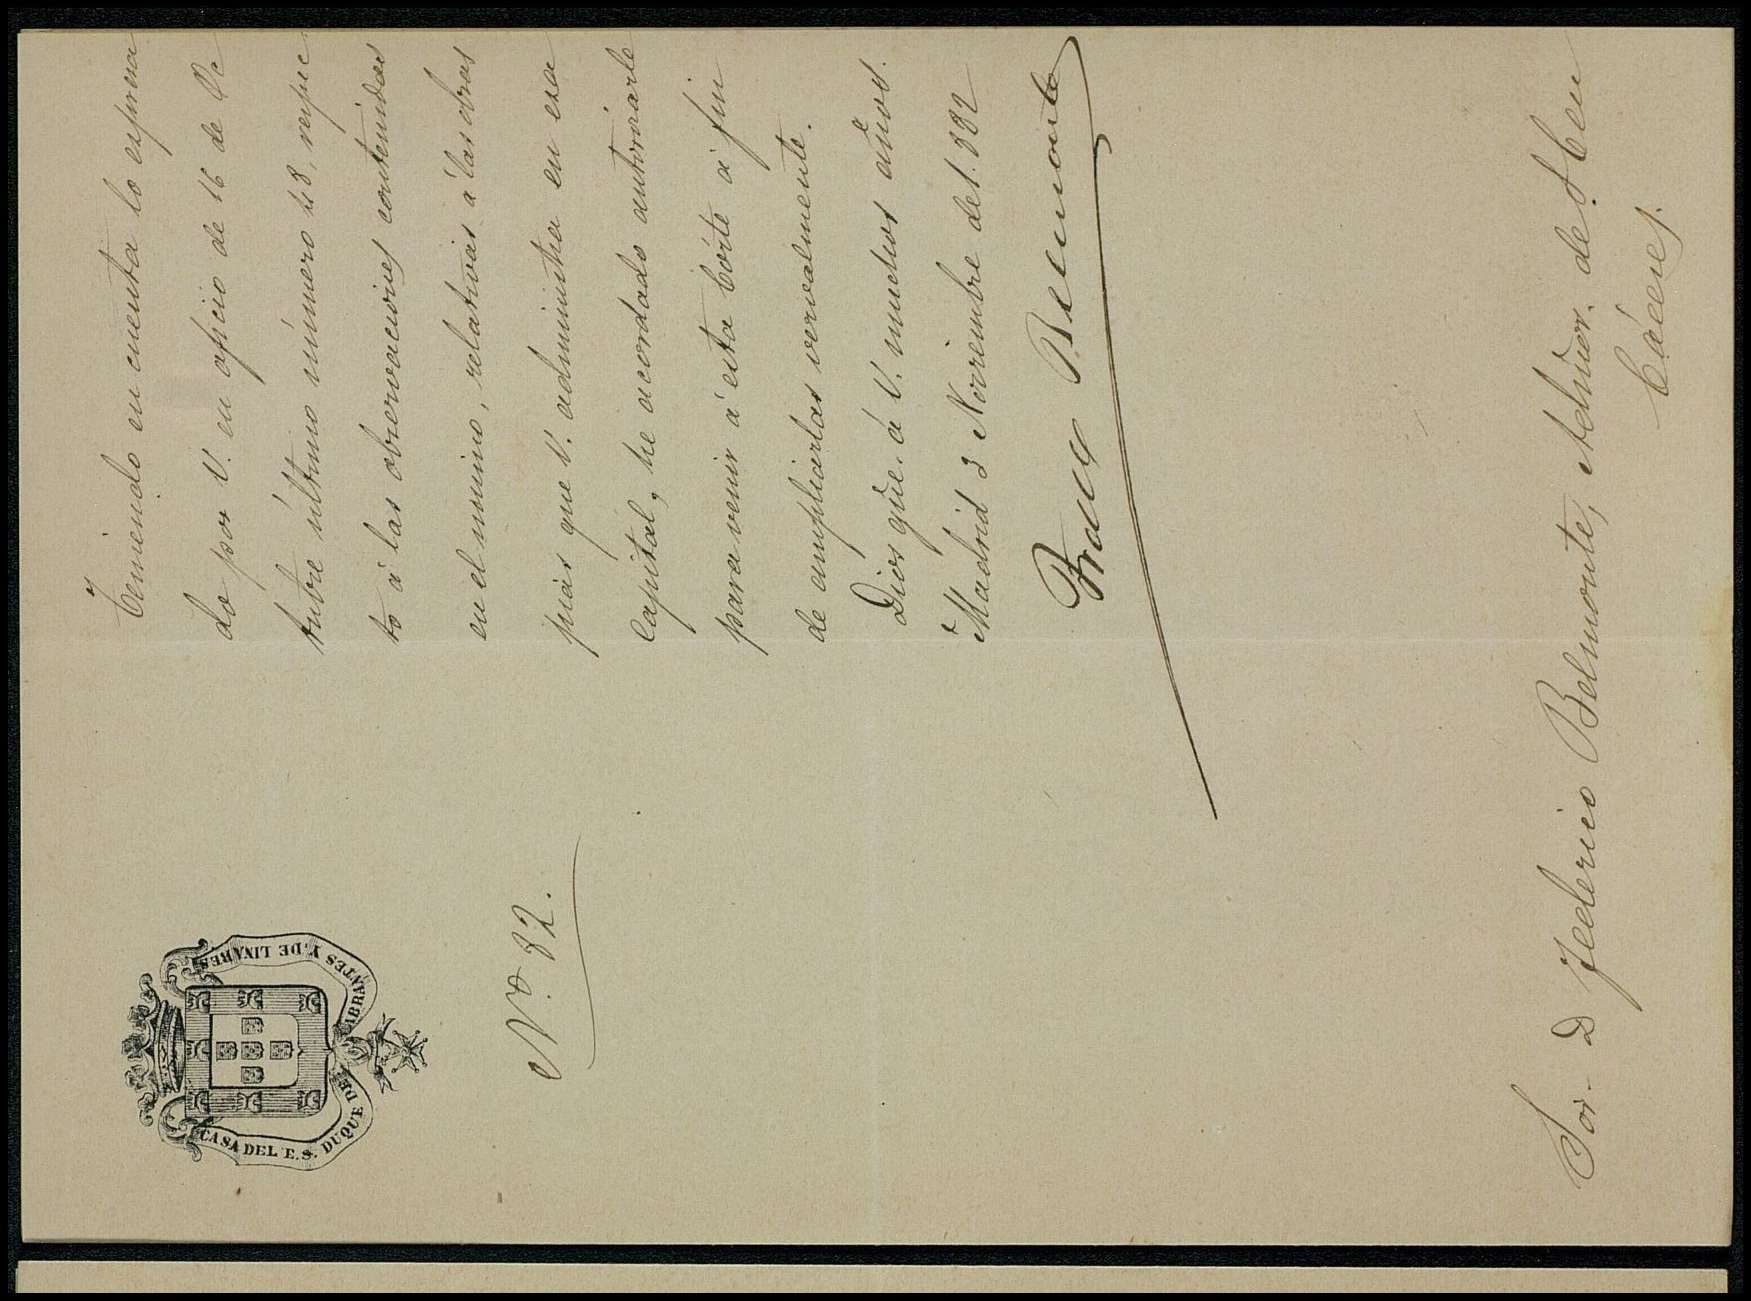 CASA DEL E.S. DUQUE DE ABRANTES Y DE LINARES
Nº 82.
Teniendo en cuenta lo expresa
do por V. en oficio de 16 de Oc
tubre último número 48, respec
to á las observaciones contenidas
en el mismo, relativas á las obras
pias que V. administra en esa
Capital, he acordado autorizarle
para venir á esta Córte á fin
de ampliarlas vervalmente.
Dios gûe. á V. muchos años.
Madrid 3 Noviembre de 1.882
Franco Belmonte
Sor. D Federico Belmonte, Admor. de
Cáceres.